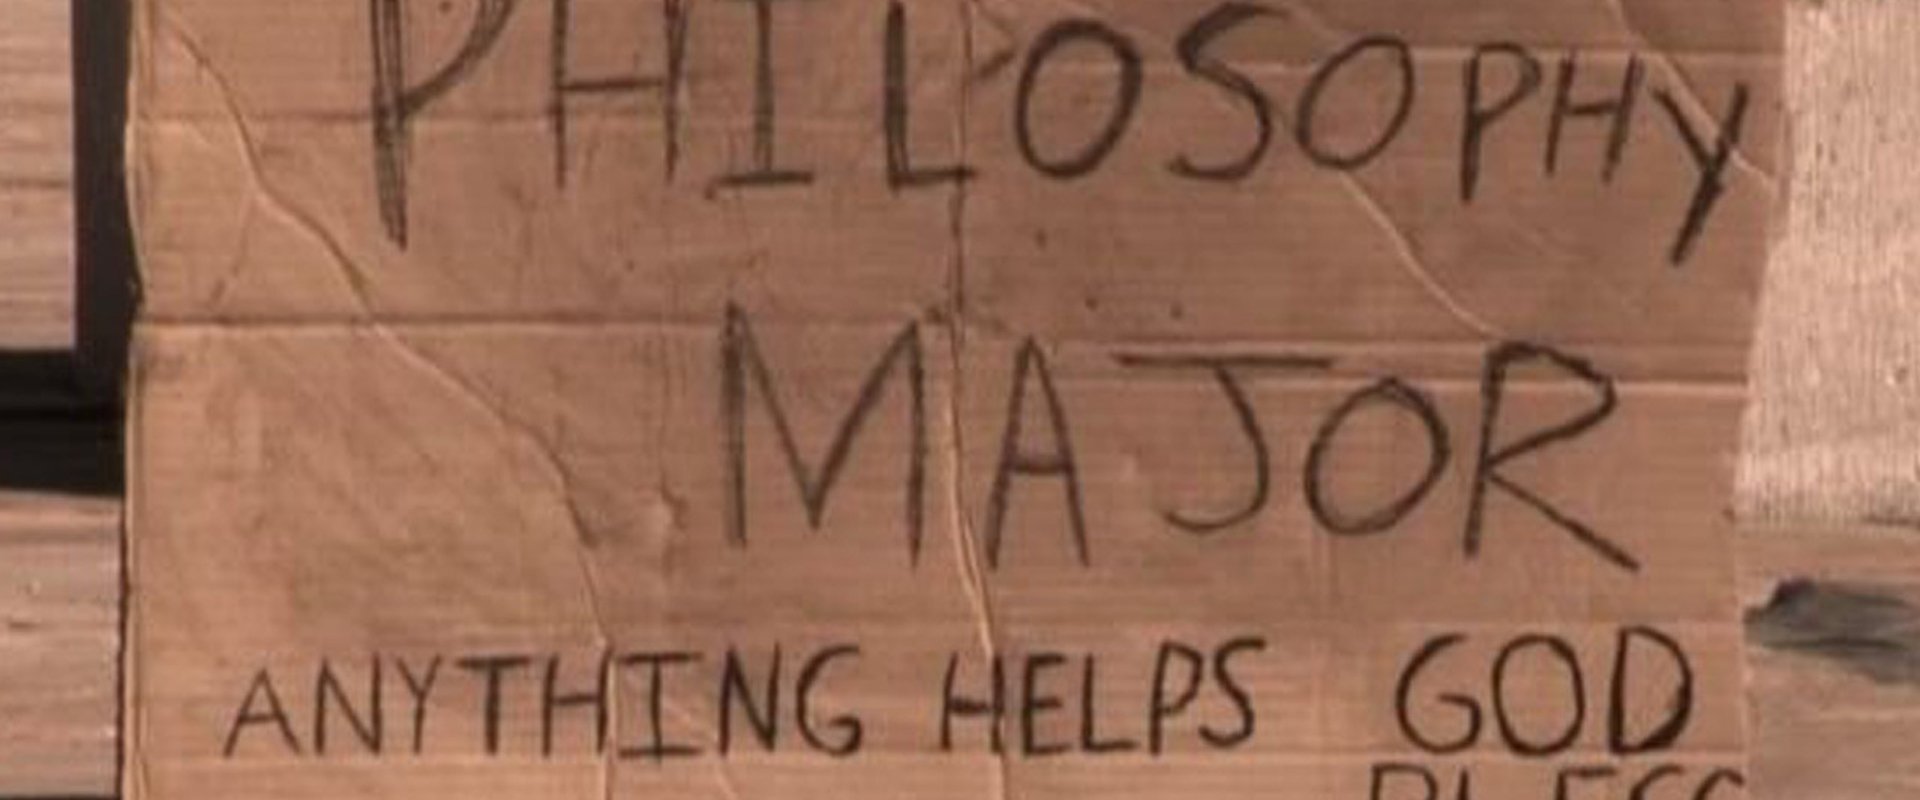 PHILOSOPHY
MAJOR
ANYTHING HELPS GOD
BLESS